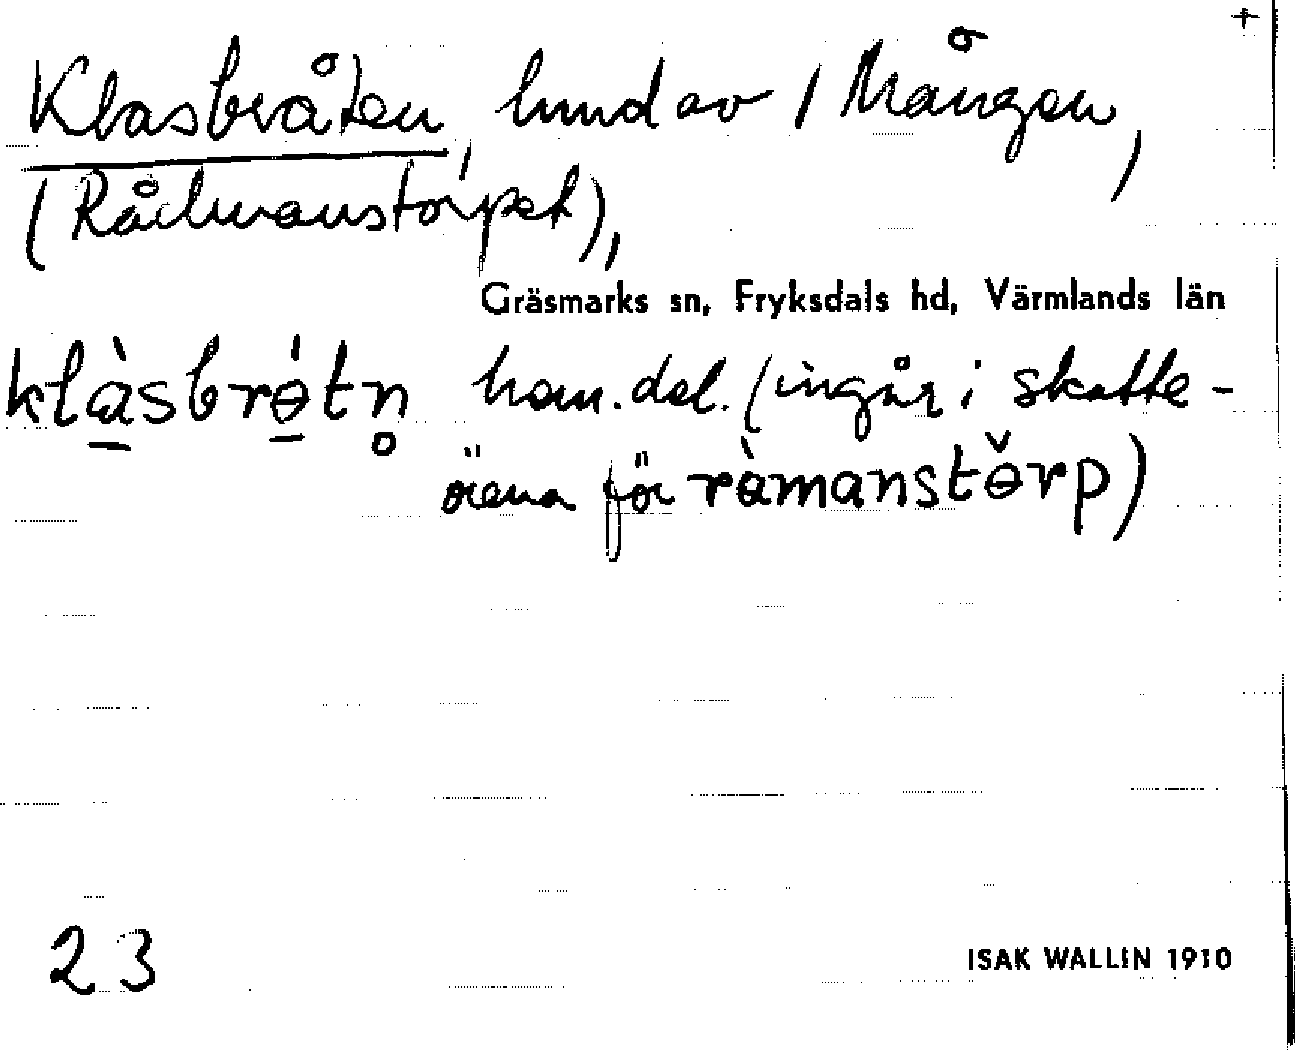 +
Klasbråten, hmd av 1 Mången,
(Rådmanstorpet),
Gräsmarks sn, Fryksdals hd, Värmlands län
klàsbrɵ́tn̥ hem.del. (ingår i skatte-
örena för ràmanstɵ̌rp)
23
ISAK WALLIN 1910